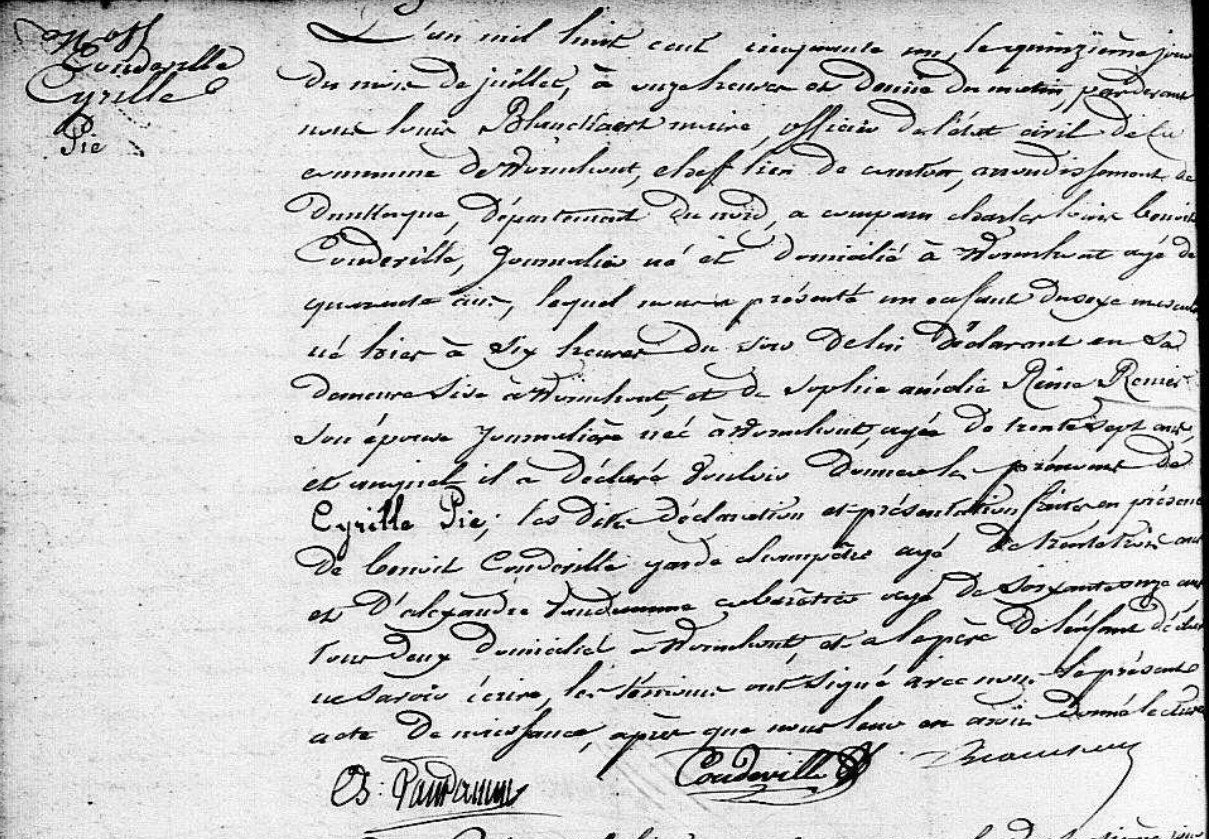 Coudeville
Cyrille
Pie
L'an mil huit cent cinquante un, le quinzième jour
du mois de juillet, à onze heures et demie du matin, pardevant
nous louis Blanckaert maire, officier de l'état civil de la
commune de Wormhout, cheff lieu de canton, arrondissement de
Dunkerque, département du nord, a comparu charles louis benoit
Coudeville, Journalier né et domicilié à Wormhout agé de
quarante ans, lequel nous a présenté un enfant du sexe masculin
né hier à six heures du soir de lui déclarant en sa
demeure sise à Wormhout, et de Sophie amélie Reine
son épouse Journalière née à Wormhout, agée de trente sept ans,
et auquel il a déclaré vouloir donner les prénoms de
Cyrille Pie; les dites déclaration et présentation faites en présence
de benoit Coudeville garde champêtre agé de trente trois ans
et d'alexandre Vandamme cabaretier agé de soixante onze ans
tous deux domiciliés à Wormhout, et a le père de l'enfant déclaré
ne savoir écrire, les témoins ont signé avec nous le présent
acte de naissance, après que nous leur en avoir donné lecture
Vandamme Coudeville